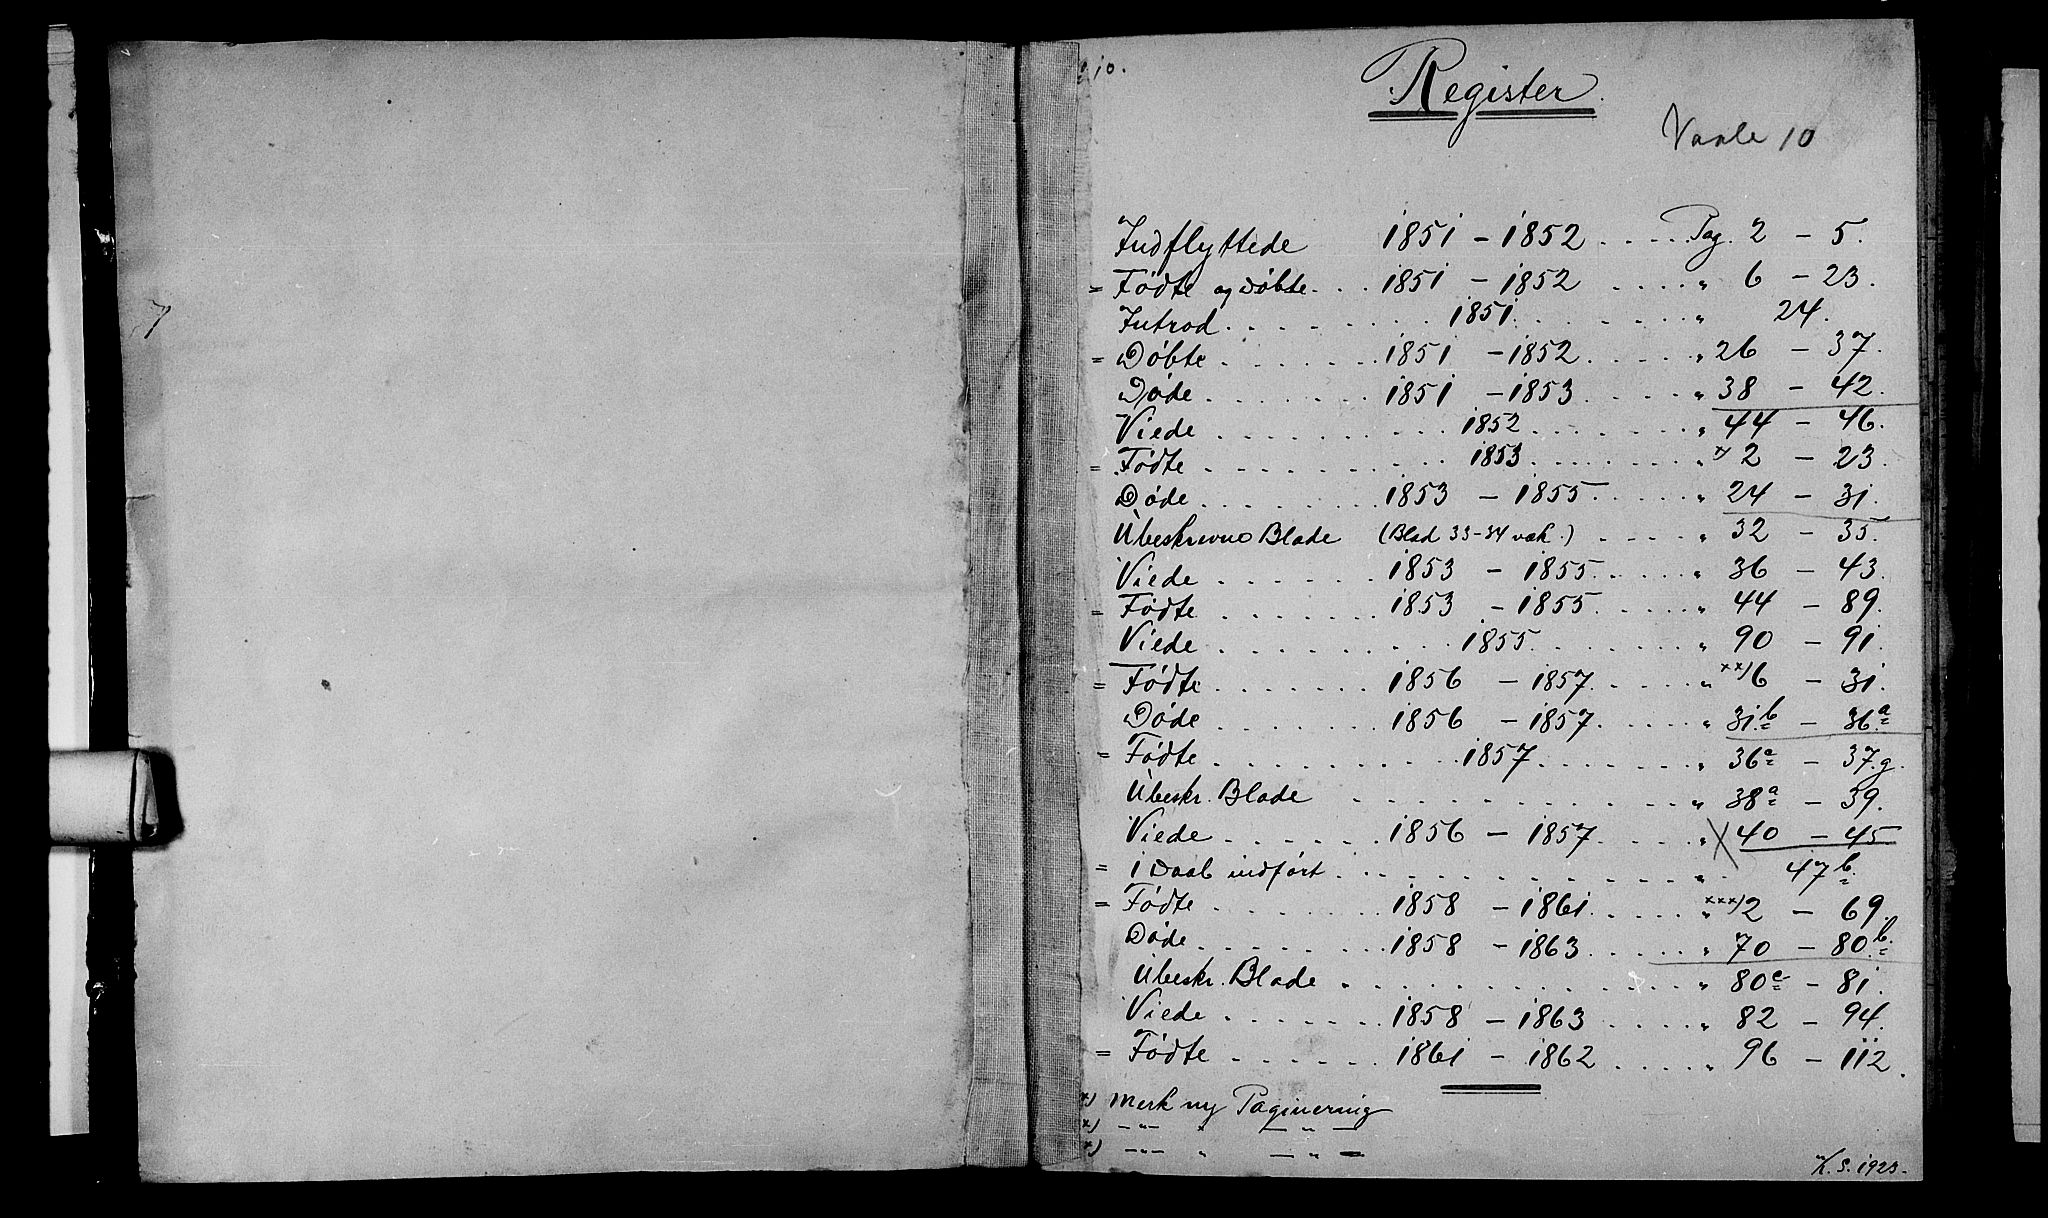 10.
Register.
Vaale 10
Indflyttede 1851 - 1852 .... Pag. 2 - 5.
= Fødte og døbte. . . 1851 - 1852 .... " 6 - 23.
Introd. . . . . . . . 1851. . . . . . . " 24.
= Døbte . . . . . . . 1851 - 1852. . . . . " 26 - 37.
Døde . . . . . . . 1851 - 1853. . . . . " 38 - 42.
Viede . . . . . . . . 1852. . . . . . . " 44 - 46.
= Fødte . . . . . . . . 1853. . . . . . . " x) 2 - 23.
Døde. . . . . . . . 1853 - 1855. . . . . " 24 - 31.
Ubeskrevne Blade (Blad 33-34 vak.) . . . . " 32 - 35.
Viede . . . . . . 1853 - 1855. . . . . " 36 - 43.
= Fødte . . . . . . . 1853 - 1855. . . . . " 44 - 89.
Viede . . . . . . . . . 1855. . . . . . . " 90 - 91.
= Fødte . . . . . . . 1856 - 1857. . . . . " xx) 6 - 31.
Døde . . . . . . 1856 - 1857. . . . . " 31.b - 36.a
= Fødte . . . . . . . . . . 1857. . . . . . . " 36a - 37.g.
Ubeskr. Blade . . . . . . . . . . . . " 38a - 39.
Viede . . . . . . . 1856 - 1857. . . . . " 40 - 45
= i Daab indført . . . . . . . . . . . . . " 47b.
= Fødte . . . . . . . 1858 - 1861. . . . . " xxx) 2 - 69.
Døde. . . . . . . . 1858 - 1863. . . . . " 70 - 80.b.
Ubeskr. Blade . . . . . . . . . . . . . " 80c - 81.
Viede . . . . . . . 1858 - 1863 . . . . . " 82 - 94.
= Fødte . . . . . . 1861 - 1862 . . . . . " 96 - 112.
x) Merk ny Paginering
x) - " - " - " -
x) - " - " - " -
K. S. 1923.